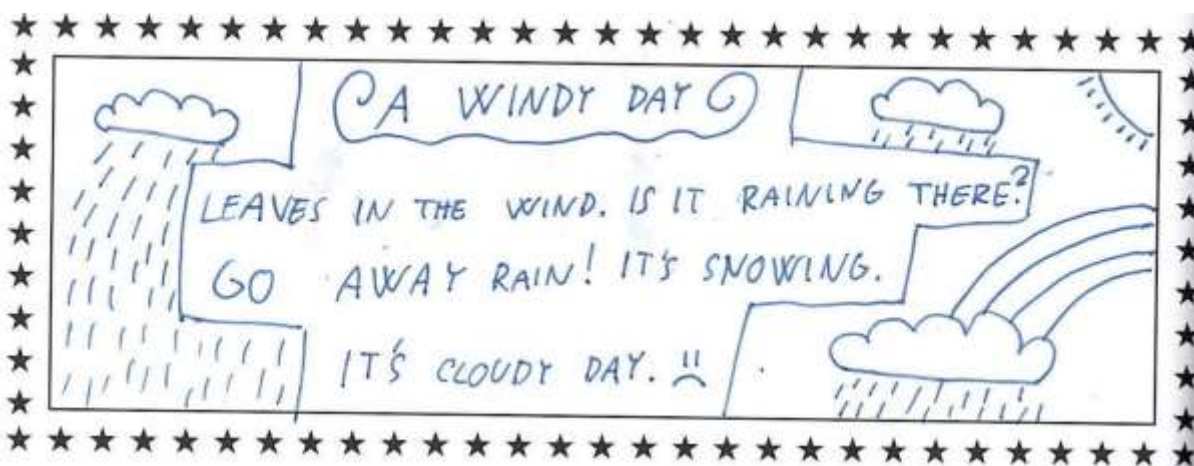 A WINDY DAY
LEAVES IN THE WIND. IS IT RAINING THERE?
GO AWAY RAIN! IT'S SNOWING.
IT'S CLOUDY DAY.